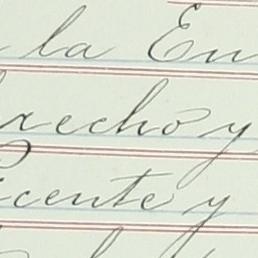 la En
recho y
icente y